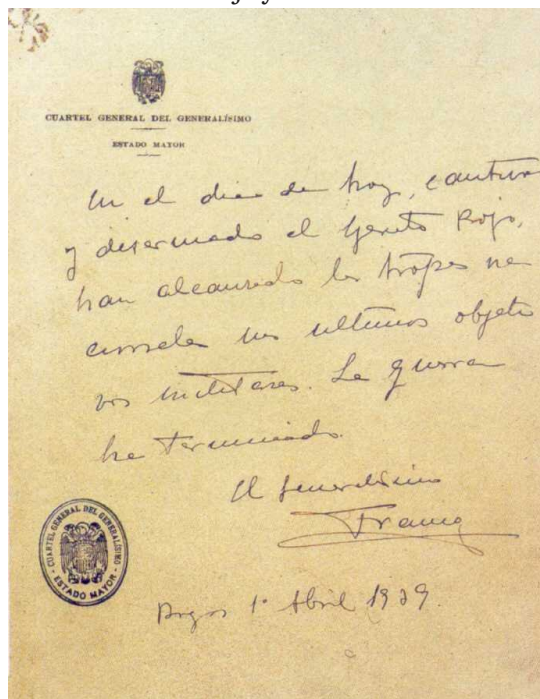 CUARTEL GENERAL DEL GENERALÍSIMO
ESTADO MAYOR
En el dia de hoy, cautivo
y desarmado el Ejercito Rojo,
han alcanzado las tropas na
cionales sus ultimos objeti
vos militares. La guerra
ha terminado.
El Generalísimo
Franco
CUARTEL GENERAL DEL GENERALISIMO
- ESTADO MAYOR -
Burgos 1º Abril 1939.